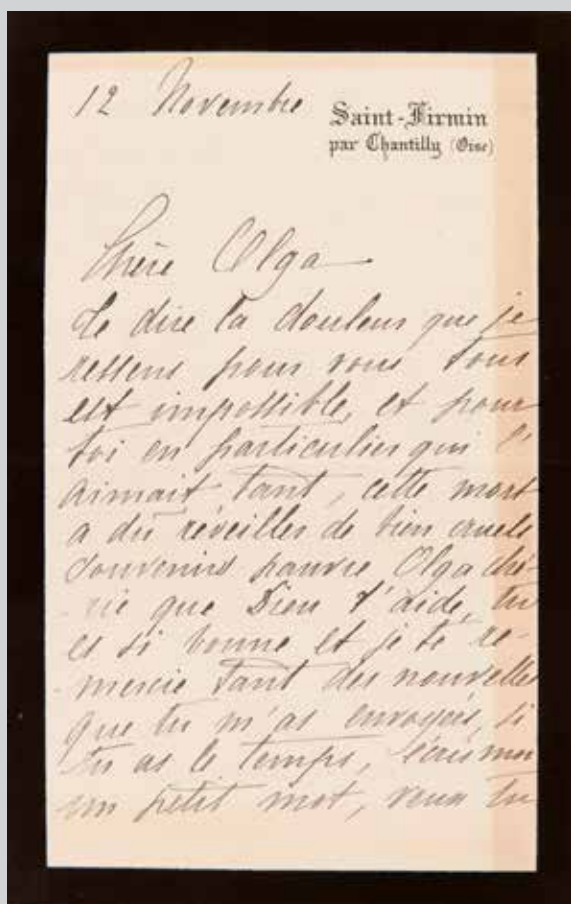 12 Novembre
Saint-Firmin
par Chantilly (Oise)
Chère Olga
Te dire la douleur que je
ressens pour vous tous
est impossible, et pour
toi en particulier qui
aimait tant, cette mort
a dû réveiller de bien cruels
souvenirs pauvre Olga ché-
-rie que Dieu t'aide, tu
es si bonne et je te re-
-mercie tant des nouvelles
que tu m'as envoyées, si
tu as le temps, écris moi
un petit mot, veux tu